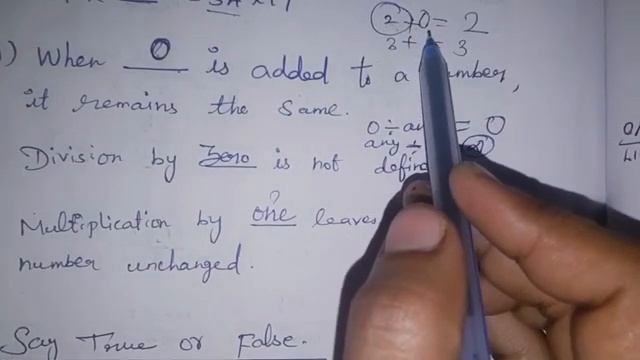 2 + 0 = 2
3 + 3
) When 0 is added to a number,
it remains the same.
0 ÷ any = 0
any ÷
Division by Zero is not defin
Multiplication by one leaves
number unchanged.
Say True or False.